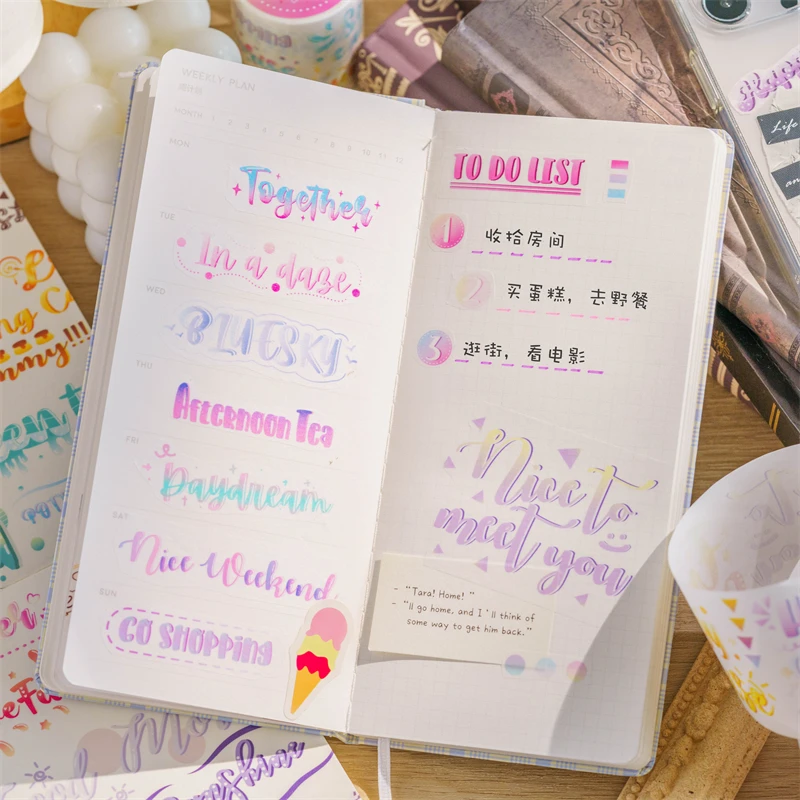 WEEKLY PLAN
周计划
MONTH 1 2 3 4 5 6 7 8 9 10 11 12
MON
Together
TUE
In a daze
WED
BLUESKY
THU
Afternoon Tea
FRI
Daydream
SAT
Nice Weekend
SUN
GO SHOPPING
TO DO LIST
1 收拾房间
2 买蛋糕，去野餐
3 逛街，看电影
Nice to
meet you
- "Tara! Home! "
- "ll go home, and I'll think of
some way to get him back."
Life